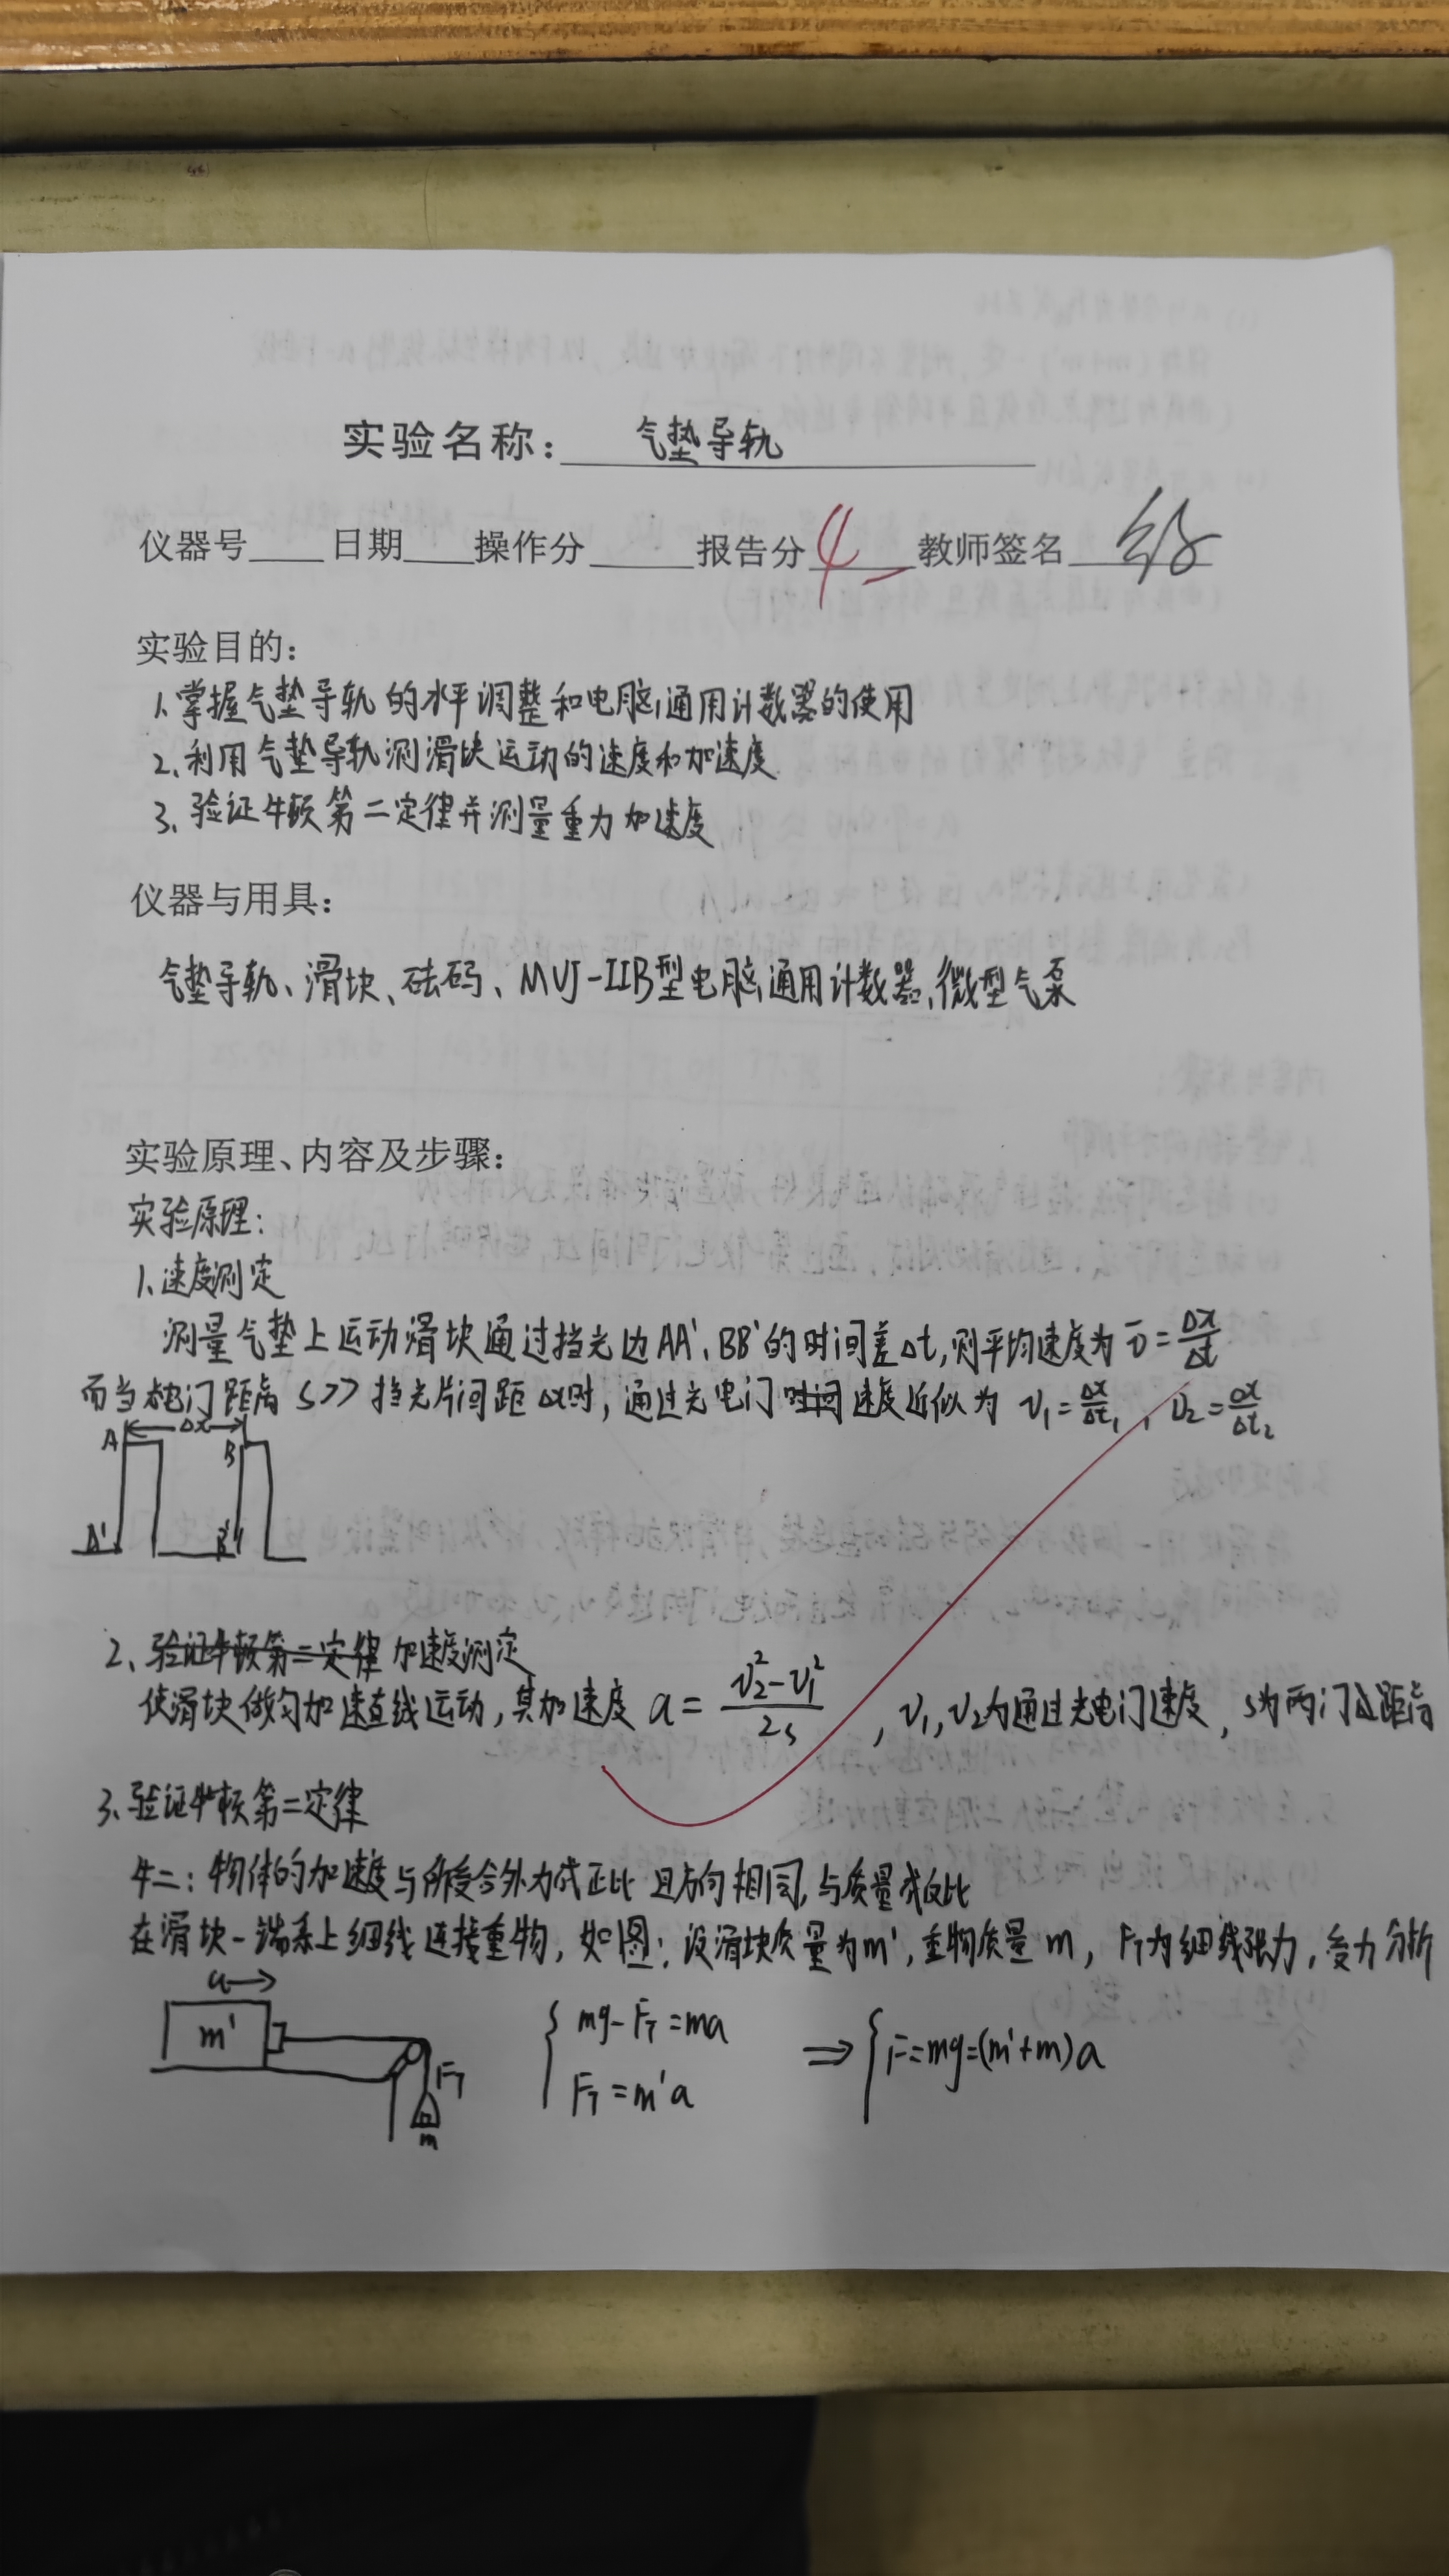 实验名称: 气垫导轨
仪器号____日期____操作分____报告分 4 教师签名
实验目的:
1、掌握气垫导轨的水平调整和电脑通用计数器的使用
2、利用气垫导轨测滑块运动的速度和加速度
3、验证牛顿第二定律并测量重力加速度
仪器与用具:
气垫导轨、滑块、砝码、MUJ-IIB型电脑通用计数器、微型气泵
实验原理、内容及步骤:
实验原理:
1、速度测定
测量气垫上运动滑块通过挡光边AA'、BB'的时间差Δt,则平均速度为 v̄=Δx/Δt
而当光电门距离 s>>挡光片间距Δx时,通过光电门时间速度近似为 v₁=Δx/Δt₁, v₂=Δx/Δt₂
Δx
A B
A' B'
2、验证牛顿第二定律 加速度测定
使滑块做匀加速直线运动,其加速度 a=(v₂²-v₁²)/2s ,v₁,v₂为通过光电门速度,s为两门距离
3、验证牛顿第二定律
牛二:物体的加速度与所受合外力成正比且方向相同,与质量成反比
在滑块一端系上细线连接重物,如图:设滑块质量为m',重物质量m,F_T为细线张力,受力分析
a→
m' F_T m
{ mg-F_T=ma
F_T=m'a
⇒{ F=mg=(m'+m)a